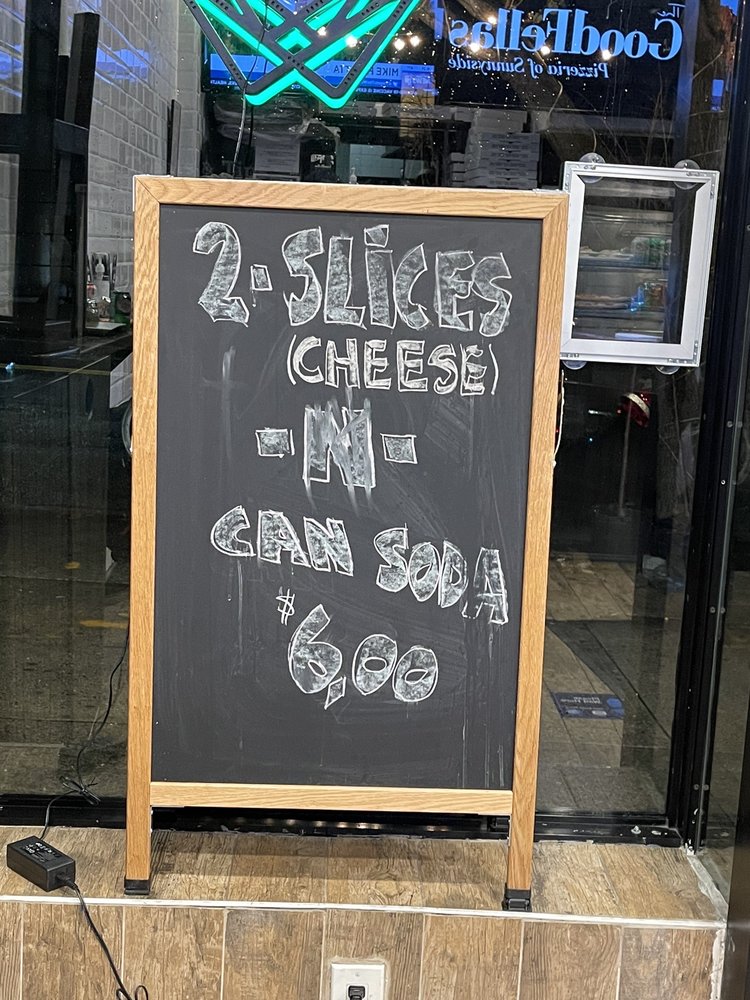 The
GoodFellas
Pizzeria of Sunnyside
MIKE
2-SLiCES
(CHEESE)
-N-
CAN SODA
$6,00